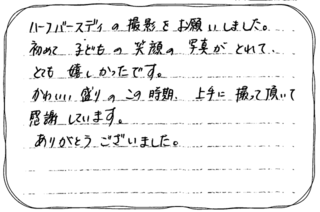 ハーフバースディの撮影をお願いしました。
初めて子どもの笑顔の写真がとれて、
とても嬉しかったです。
かわいい盛りのこの時期、上手に撮って頂いて
感謝しています。
ありがとうございました。